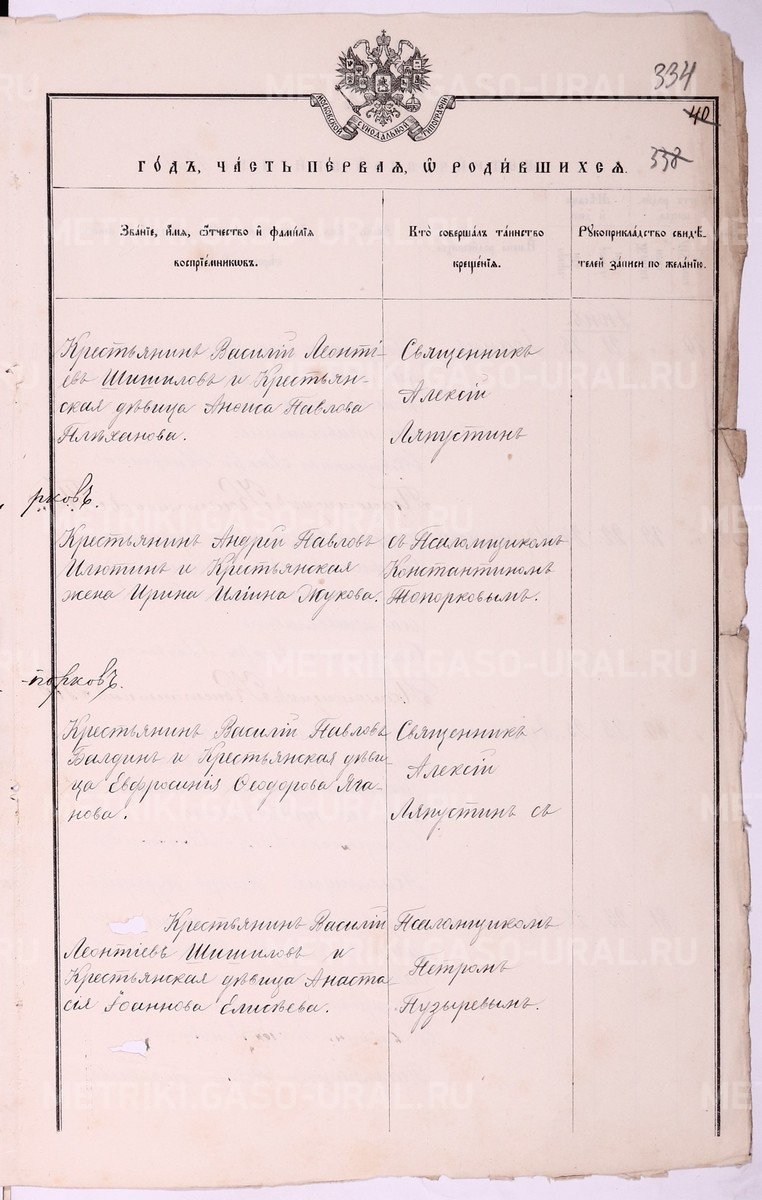 334
40
338
МОСКОВСКОЙ СѴНОДАЛЬНОЙ ТИПОГРАФІИ
ГО́ДЪ, ЧА́СТЬ ПЕ́РВАЯ, Ѽ РОДИ́ВШИХСЯ.
Зва́нїе, и҆́мѧ, ѻ҆́тчество и҆ фами́лїѧ
воспрїе́мникѡвъ.
Кто̀ соверша́лъ та́инство
креще́нїѧ.
Рꙋкоприкла́дство свидѣ́-
телей за́писи по жела́нїю.
Крестьянинъ Василій Леонті-
евъ Шишиловъ и Крестьян-
ская дѣвица Анѳиса Павлова
Плѣханова.
Священникъ
Алексій
Ляпустинъ
рковъ.
Крестьянинъ Андрей Павловъ
Илютинъ и Крестьянская
жена Ирина Иліина Жукова.
съ Псаломщикомъ
Константиномъ
Топорковымъ.
-порковъ.
Крестьянинъ Василій Павловъ
Балдинъ и Крестьянская дѣви-
ца Евфросинія Ѳеодорова Яга-
нова.
Священникъ
Алексій
Ляпустинъ съ
Крестьянинъ Василій
Леонтіевъ Шишиловъ и
Крестьянская дѣвица Анаста-
сія Іоаннова Елисѣева.
Псаломщикомъ
Петромъ
Пузыревымъ.
METRIKI.GASO-URAL.RU